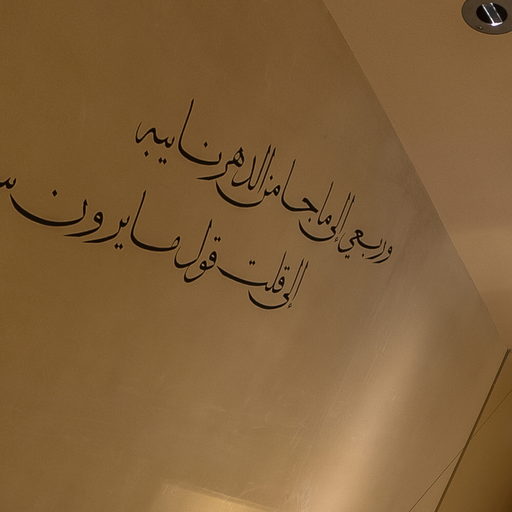 وربعي إلى ما جا من الدهر نايبه
إلى قلت قول ما يرون